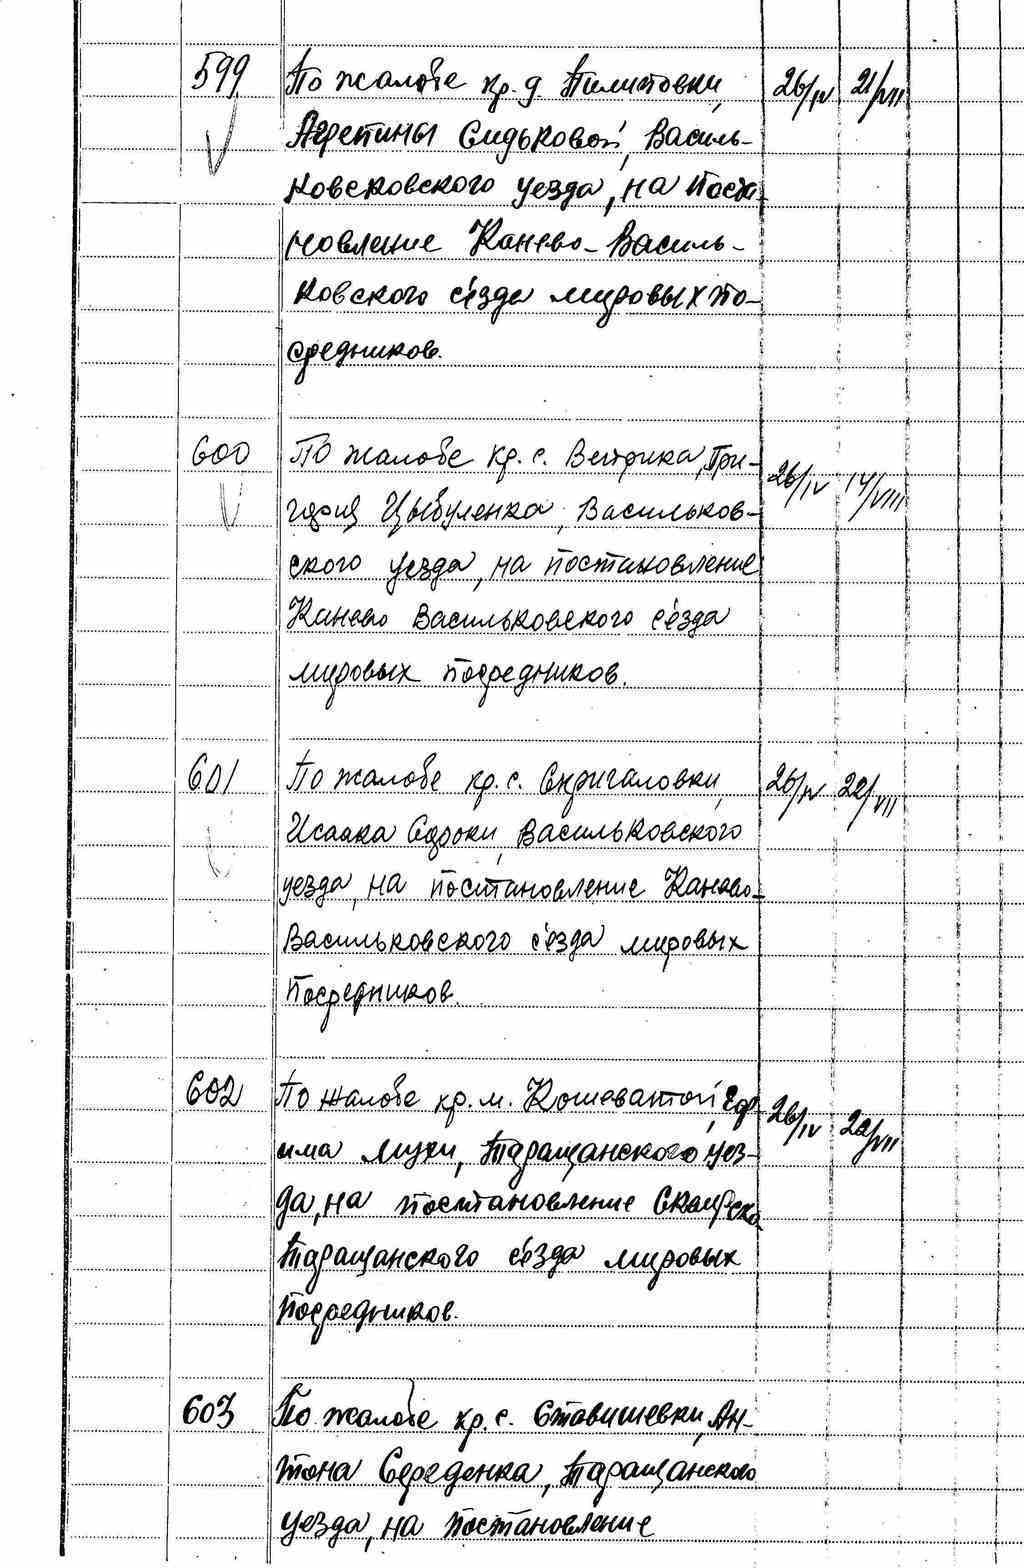 599 По жалобе кр. д. Пилиповки, 26/IV 21/VII
Агрепины Сидьковой, Василь-
ковсковского уезда, на поста-
новление Канево-Василь-
ковского с'езда мировых по-
средников.
600 По жалобе кр. с. Ветрика, Гри- 26/IV 14/VIII
гория Цыбуленка, Васильков-
ского уезда, на постановление
Канево Васильковского с'езда
мировых посредников.
601 По жалобе кр. с. Скригаловки, 26/IV 22/VII
Исаака Сороки, Васильковского
уезда, на постановление Канево-
Васильковского с'езда мировых
посредников.
602 По жалобе кр. м. Кошеватой, Еф- 26/IV 22/VII
има Музки, Таращанского уез-
да, на постановление Сквирско-
Таращанского с'езда мировых
посредников.
603 По жалобе кр. с. Ставишевки, Ан-
тона Середенка, Таращанского
уезда, на постановление